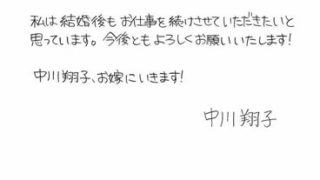 私は結婚後もお仕事を続けさせていただきたいと
思っています。今後ともよろしくお願いいたします!
中川翔子、お嫁にいきます!
中川翔子